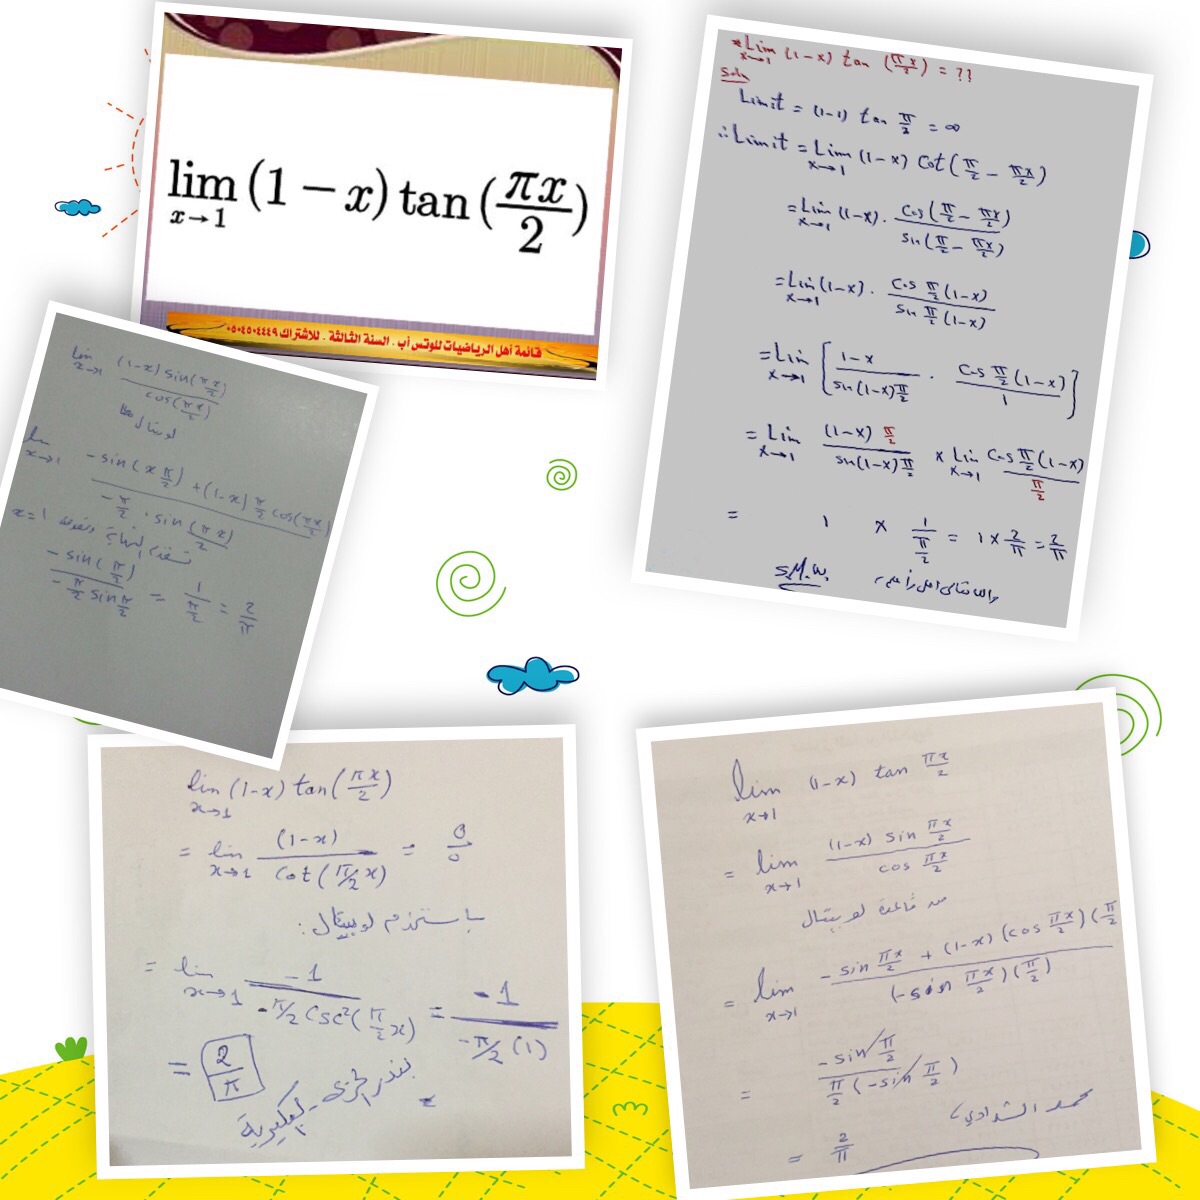 lim (1 − x) tan (πx/2)
x→1
قائمة أهل الرياضيات للوتس أب . السنة الثالثة . للاشتراك ٠٥٠٤٥٠٤٤٤٩
* Lim (1-x) tan (πx/2) = ??
x→1
Soln
Limit = (1-1) tan π/2 = ∞
∴ Limit = Lim (1-x) Cot(π/2 - πx/2)
x→1
= Lim (1-x) . Cos(π/2 - πx/2) / sin(π/2 - πx/2)
x→1
= Lim (1-x) . Cos π/2 (1-x) / sin π/2 (1-x)
x→1
= Lim [ 1-x / sin(1-x)π/2 . Cos π/2 (1-x) / 1 ]
x→1
= Lim (1-x) π/2 / sin(1-x)π/2 x Lim Cos π/2 (1-x) / π/2
x→1 x→1
= 1 x 1 / π/2 = 1 x 2/π = 2/π
S.M.W.
lim (1-x) sin(πx/2) / cos(πx/2)
x→1
لوبيتال
lim -sin(x π/2) + (1-x) π/2 cos(πx/2) / -π/2 . sin(πx/2)
x→1
x=1
-sin(π/2) / -π/2 sin π/2 = 1 / π/2 = 2/π
lim (1-x) tan(πx/2)
x→1
= lim (1-x) / cot(π/2 x) = 0/0
x→1
باستخدام لوبيتال :
= lim -1 / -π/2 csc²(π/2 x) = -1 / -π/2 (1)
x→1
= 2/π
lim (1-x) tan πx/2
x→1
= lim (1-x) sin πx/2 / cos πx/2
x→1
من قاعدة لوبيتال
= lim -sin πx/2 + (1-x) (cos πx/2) (π/2 / (-sin πx/2) (π/2)
x→1
= -sin π/2 / π/2 (-sin π/2)
= 2/π
محمد الشوادي